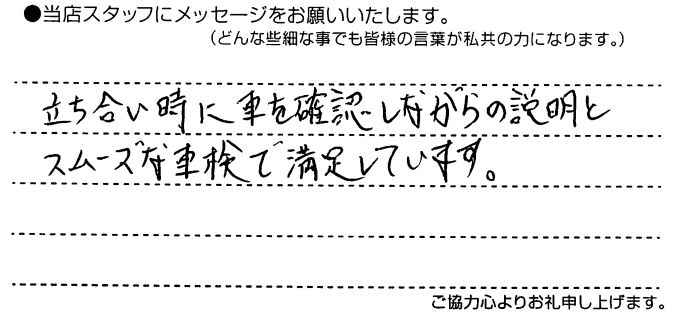 ●当店スタッフにメッセージをお願いいたします。
（どんな些細な事でも皆様の言葉が私共の力になります。）
立ち合い時に車を確認しながらの説明と
スムーズな車検で満足しています。
ご協力心よりお礼申し上げます。